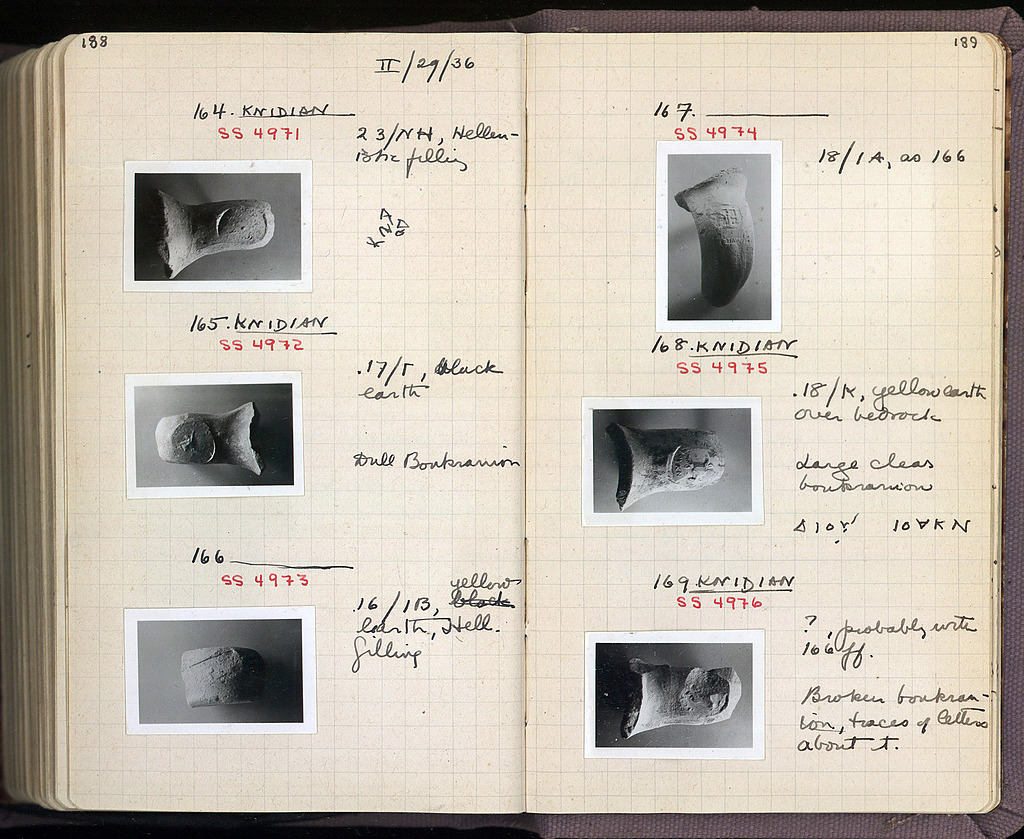 188
II/29/36
164. KNIDIAN
SS 4971
23/NH, Hellen-
istic filling
KNIΔ
165. KNIDIAN
SS 4972
.17/Γ, black
earth
Dull Boukranion
166
SS 4973
.16/IB, yellow black
earth, Hell.
filling
189
167.
SS 4974
.18/IA, as 166
168. KNIDIAN
SS 4975
.18/K, yellow earth
over bedrock
Large clear
boukranion
ΔΙΟ ΙΟ∀ΚΝ
169. KNIDIAN
SS 4976
?, probably with
166 ff.
Broken boukran-
ion, traces of letters
about it.